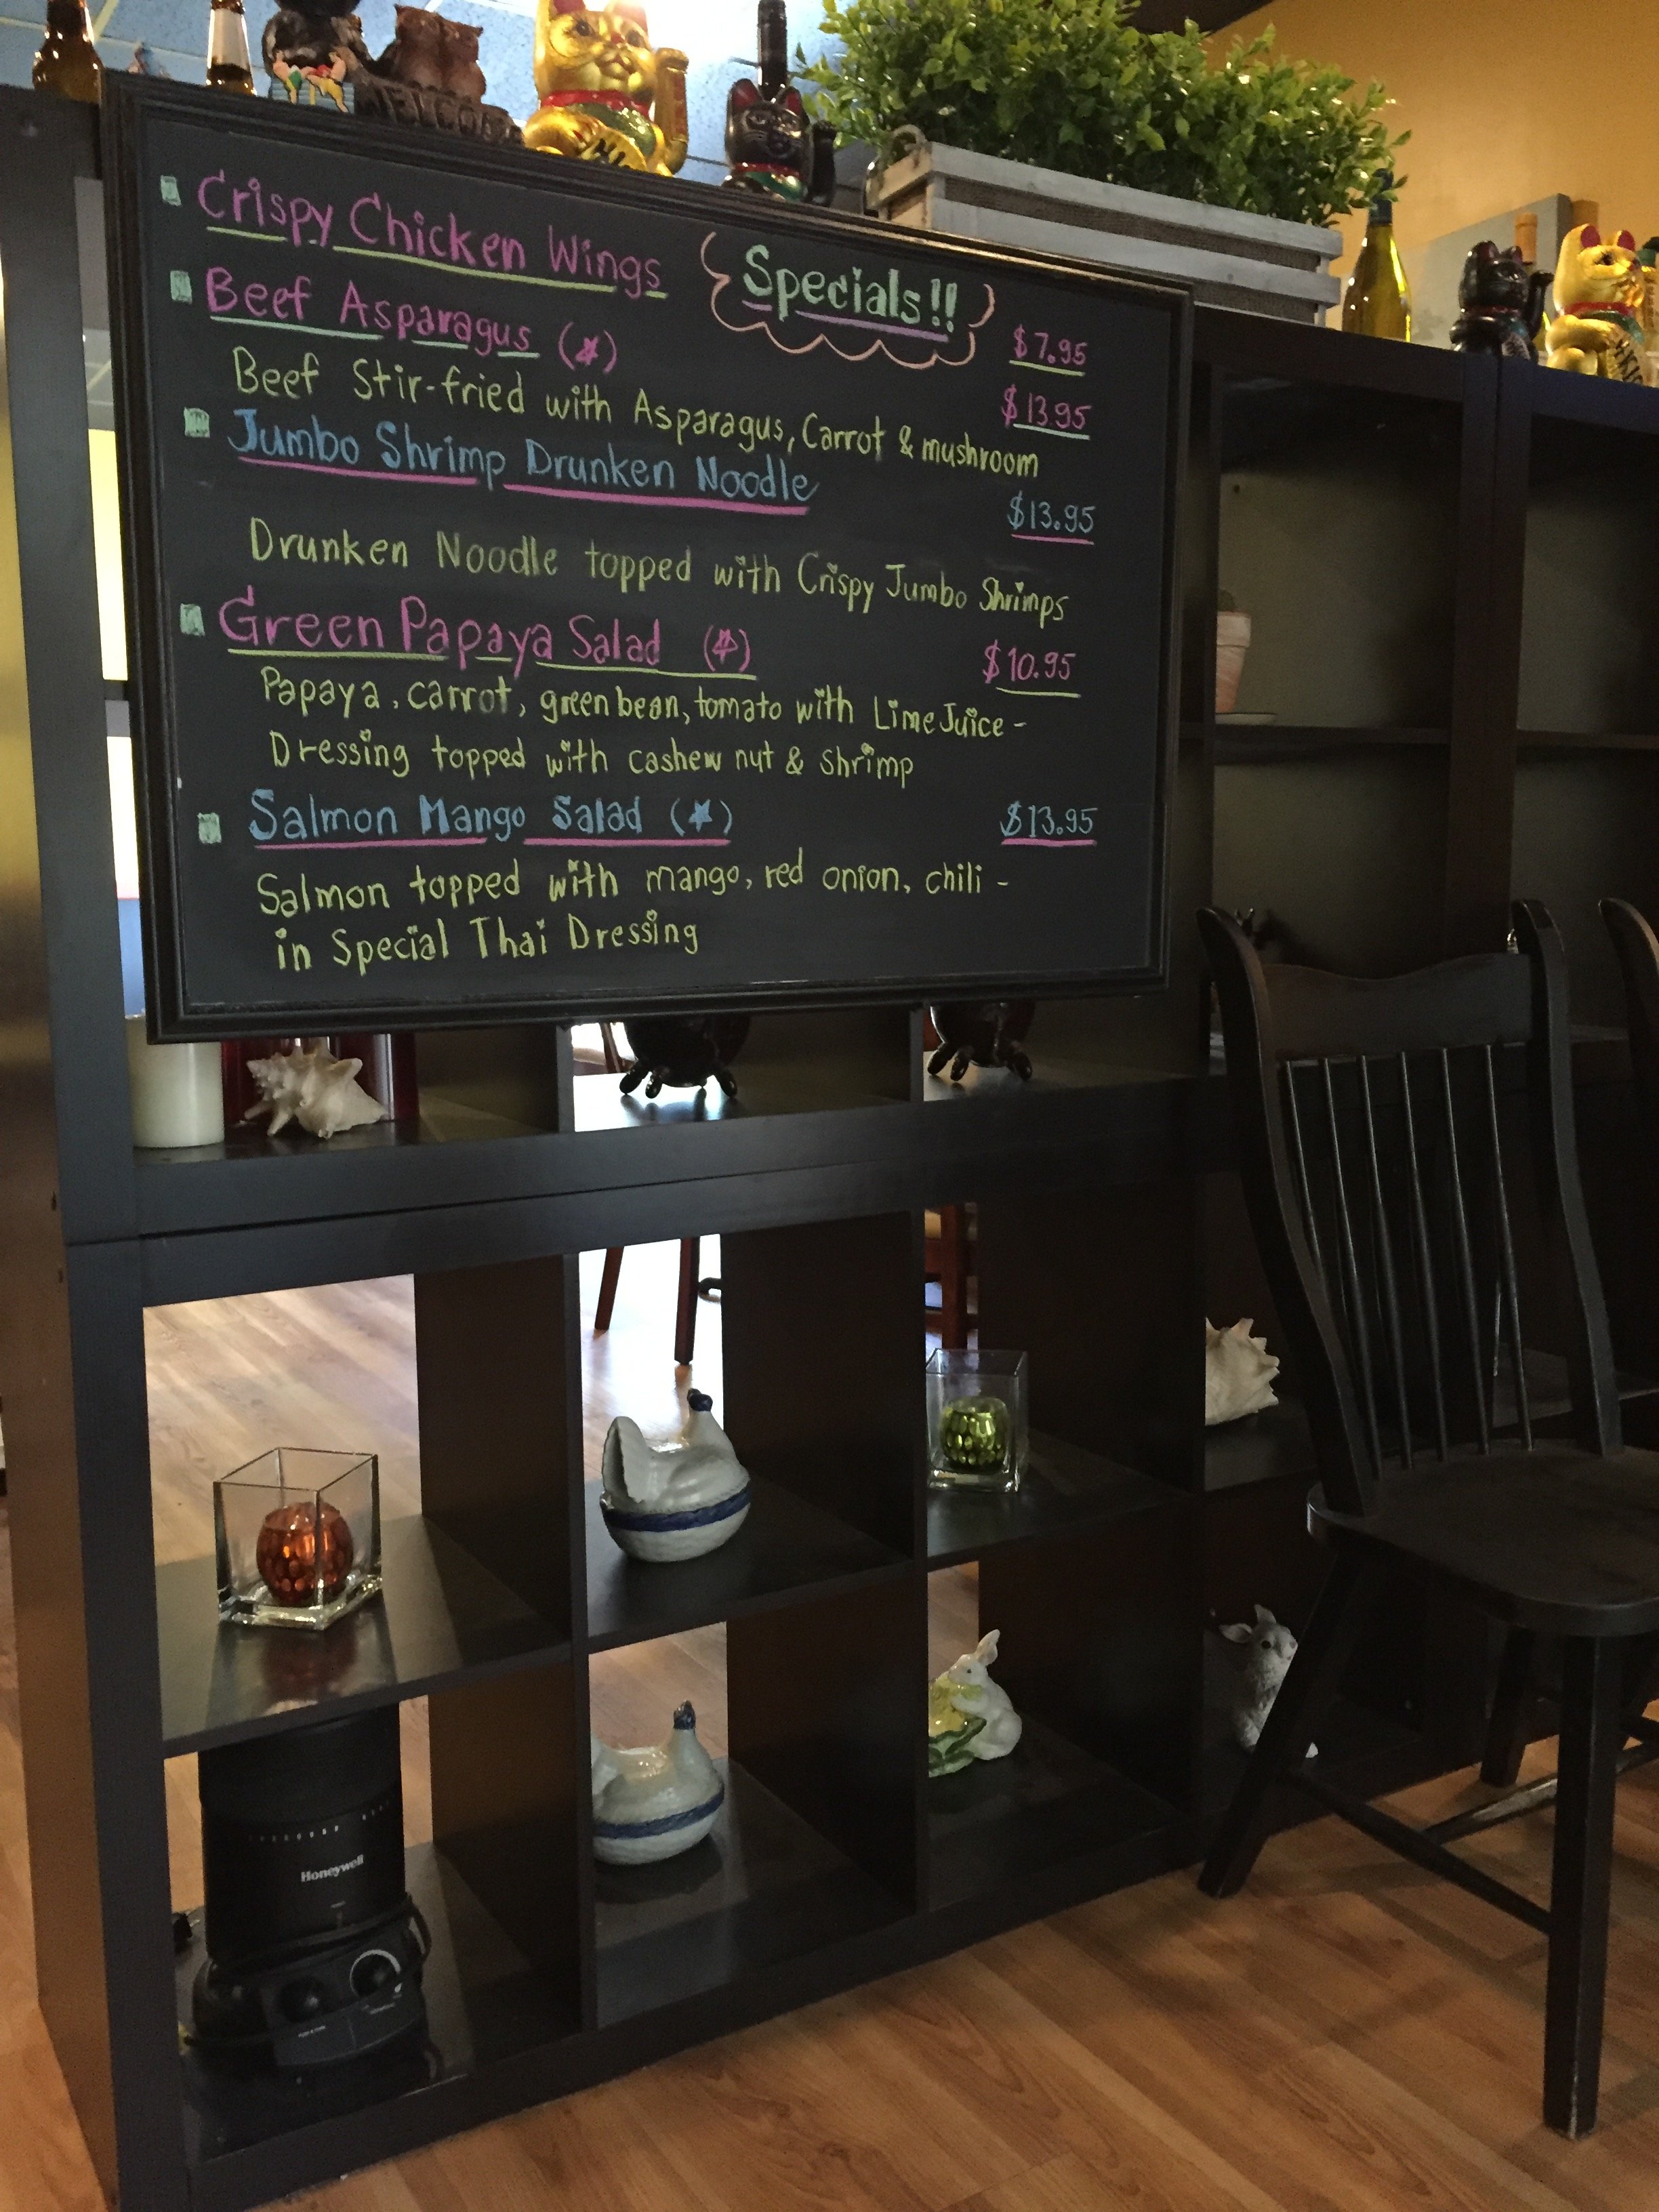 Specials!!
Crispy Chicken Wings $7.95
Beef Asparagus (★) $13.95
Beef Stir-fried with Asparagus, Carrot & mushroom
Jumbo Shrimp Drunken Noodle $13.95
Drunken Noodle topped with Crispy Jumbo Shrimps
Green Papaya Salad (★) $10.95
Papaya, carrot, green bean, tomato with Lime Juice -
Dressing topped with cashew nut & shrimp
Salmon Mango Salad (★) $13.95
Salmon topped with mango, red onion, chili -
in Special Thai Dressing
Honeywell